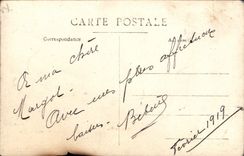 CARTE POSTALE
Correspondance
A ma chère
Margot.
Avec mes plus affectueux
baisers.
Février 1919